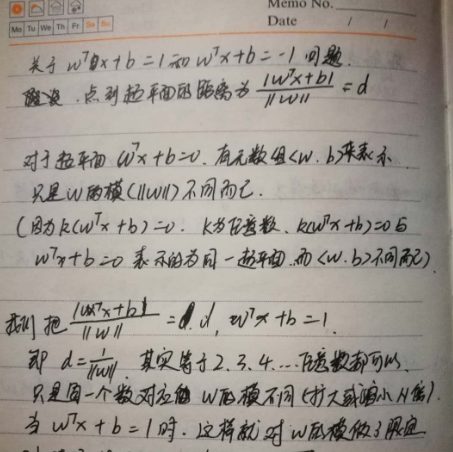 Memo No.
Mo Tu We Th Fr Sa Su
Date / /
关于 wᵀx+b=1和 wᵀx+b=-1 问题.
点到超平面的距离为 |wᵀx+b| / ||w|| = d
对于超平面 wᵀx+b=0. 有无数组<w.b>来表示
只是 w的模(||w||)不同而已.
(因为k(wᵀx+b)=0. k为任意数. k(wᵀx+b)=0与
wᵀx+b=0 表示的为同一超平面.而<w.b>不同而已)
我们把 |wᵀx+b| / ||w|| = d, wᵀx+b=1.
即 d=1/||w||. 其实等于2.3.4...任意数都可以.
只是同一个数对应 w的模不同(扩大或缩小N倍).
当 wᵀx+b=1时. 这样就对w的模做了限定